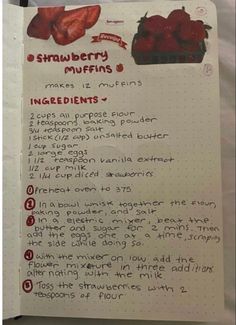 Strawberry
muffins
makes 12 muffins
INGREDIENTS
2 cups all purpose flour
2 teaspoons baking powder
3/4 teaspoon salt
1 stick (1/2 cup) unsalted butter
1 cup sugar
2 large eggs
1 1/2 teaspoon vanilla extract
1/2 cup milk
2 1/4 cup diced strawberries
1 Preheat oven to 375
2 In a bowl whisk together the flour,
baking powder, and salt
3 In a electric mixer, beat the
butter and sugar for 2 mins. Then
add the eggs one at a time, scraping
the side while doing so.
4 with the mixer on low add the
flower mixture in three additions
alternating with the milk
5 Toss the strawberries with 2
teaspoons of flour